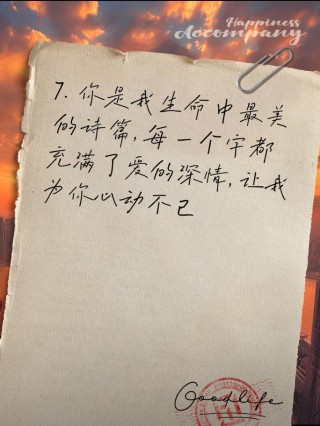 Happiness
Accompany
7. 你是我生命中最美
的诗篇，每一个字都
充满了爱的深情，让我
为你心动不已
Goodlife